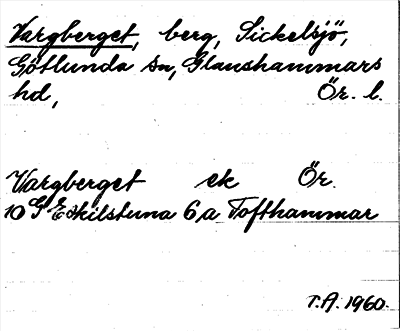 Vargberget, berg, Sickelsjö,
Götlunda sn, Glanshammars
hd, Ör. l.
Vargberget ek Ör.
10 G Eskilstuna 6 a Tofthammar
T.A. 1960.